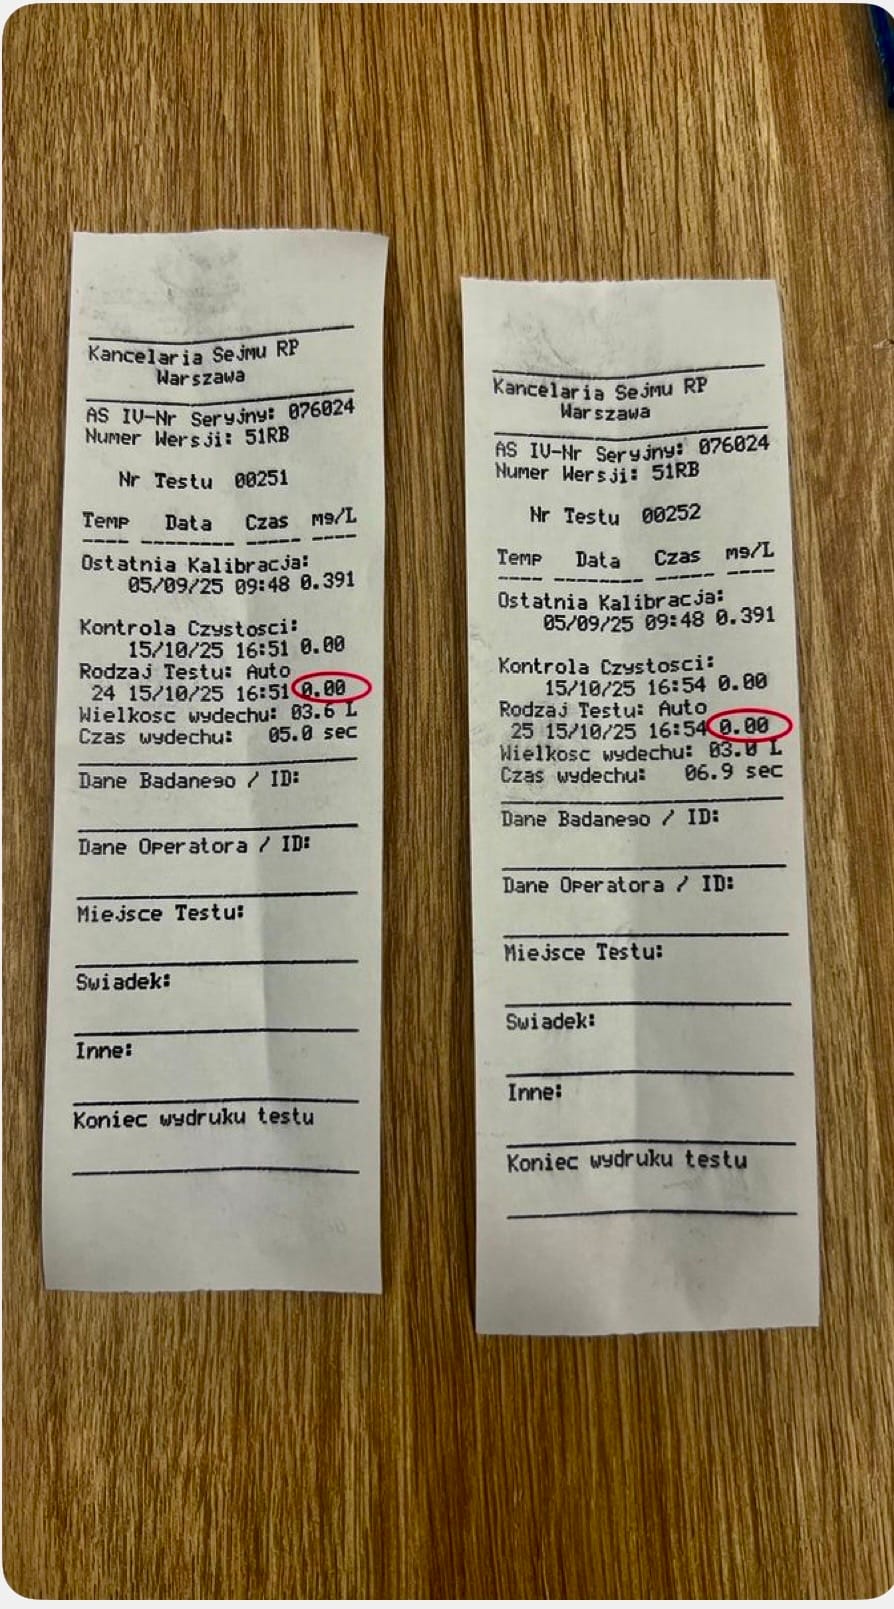 Kancelaria Sejmu RP
Warszawa
AS IV-Nr Seryjny: 076024
Numer Wersji: 51RB
Nr Testu 00251
Temp Data Czas mg/L
Ostatnia Kalibracja:
05/09/25 09:48 0.391
Kontrola Czystosci:
15/10/25 16:51 0.00
Rodzaj Testu: Auto
24 15/10/25 16:51 0.00
Wielkosc wydechu: 03.6 L
Czas wydechu: 05.0 sec
Dane Badanego / ID:
Dane Operatora / ID:
Miejsce Testu:
Swiadek:
Inne:
Koniec wydruku testu
Kancelaria Sejmu RP
Warszawa
AS IV-Nr Seryjny: 076024
Numer Wersji: 51RB
Nr Testu 00252
Temp Data Czas mg/L
Ostatnia Kalibracja:
05/09/25 09:48 0.391
Kontrola Czystosci:
15/10/25 16:54 0.00
Rodzaj Testu: Auto
25 15/10/25 16:54 0.00
Wielkosc wydechu: 03.0 L
Czas wydechu: 06.9 sec
Dane Badanego / ID:
Dane Operatora / ID:
Miejsce Testu:
Swiadek:
Inne:
Koniec wydruku testu